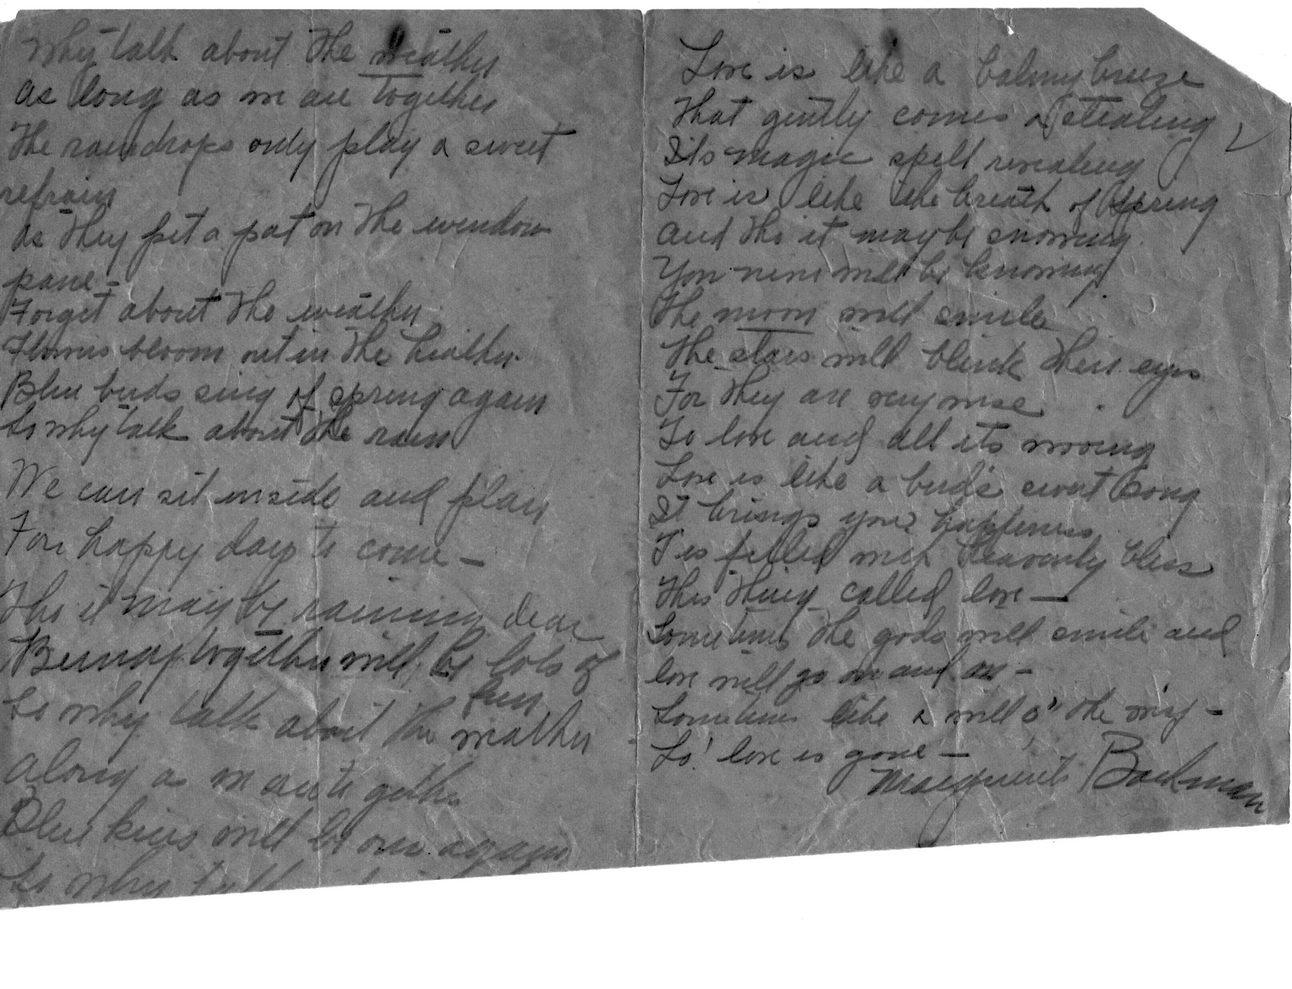 Why talk about the weather
As long as we are together
The raindrops only play a sweet
refrain
As they pit a pat on the window
pane -
Forget about the weather
Flowers bloom out in the heather
Blue birds sing of spring again
So why talk about the rain
We can sit inside and plan
For happy days to come —
Tho it may be raining dear
Being together will be lots of
fun
So why talk about the weather
Along as we are together
Blue skies will be ours again
So why talk
Love is like a balmy breeze
That gently comes a stealing
Its magic spell revealing
Love is like the breath of Spring
And tho it may be snowing
You never will be knowing
The moon will smile
The stars will blink their eyes
For they are very wise
To love and all its wooing
Love is like a bird's sweet song
It brings you happiness
Tis filled with heavenly bliss
This thing called love —
Sometimes the gods will smile and
love will go on and on -
Sometimes like a will o' the wisp -
Lo! love is gone —
Marguerite